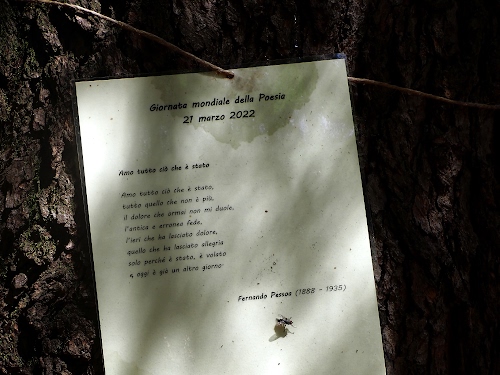 Giornata mondiale della Poesia
21 marzo 2022
Amo tutto ciò che è stato
Amo tutto ciò che è stato,
tutto quello che non è più,
il dolore che ormai non mi duole,
l'antica e erronea fede,
l'ieri che ha lasciato dolore,
quello che ha lasciato allegria
solo perché è stato, è volato
e oggi è già un altro giorno.
Fernando Pessoa (1888 - 1935)